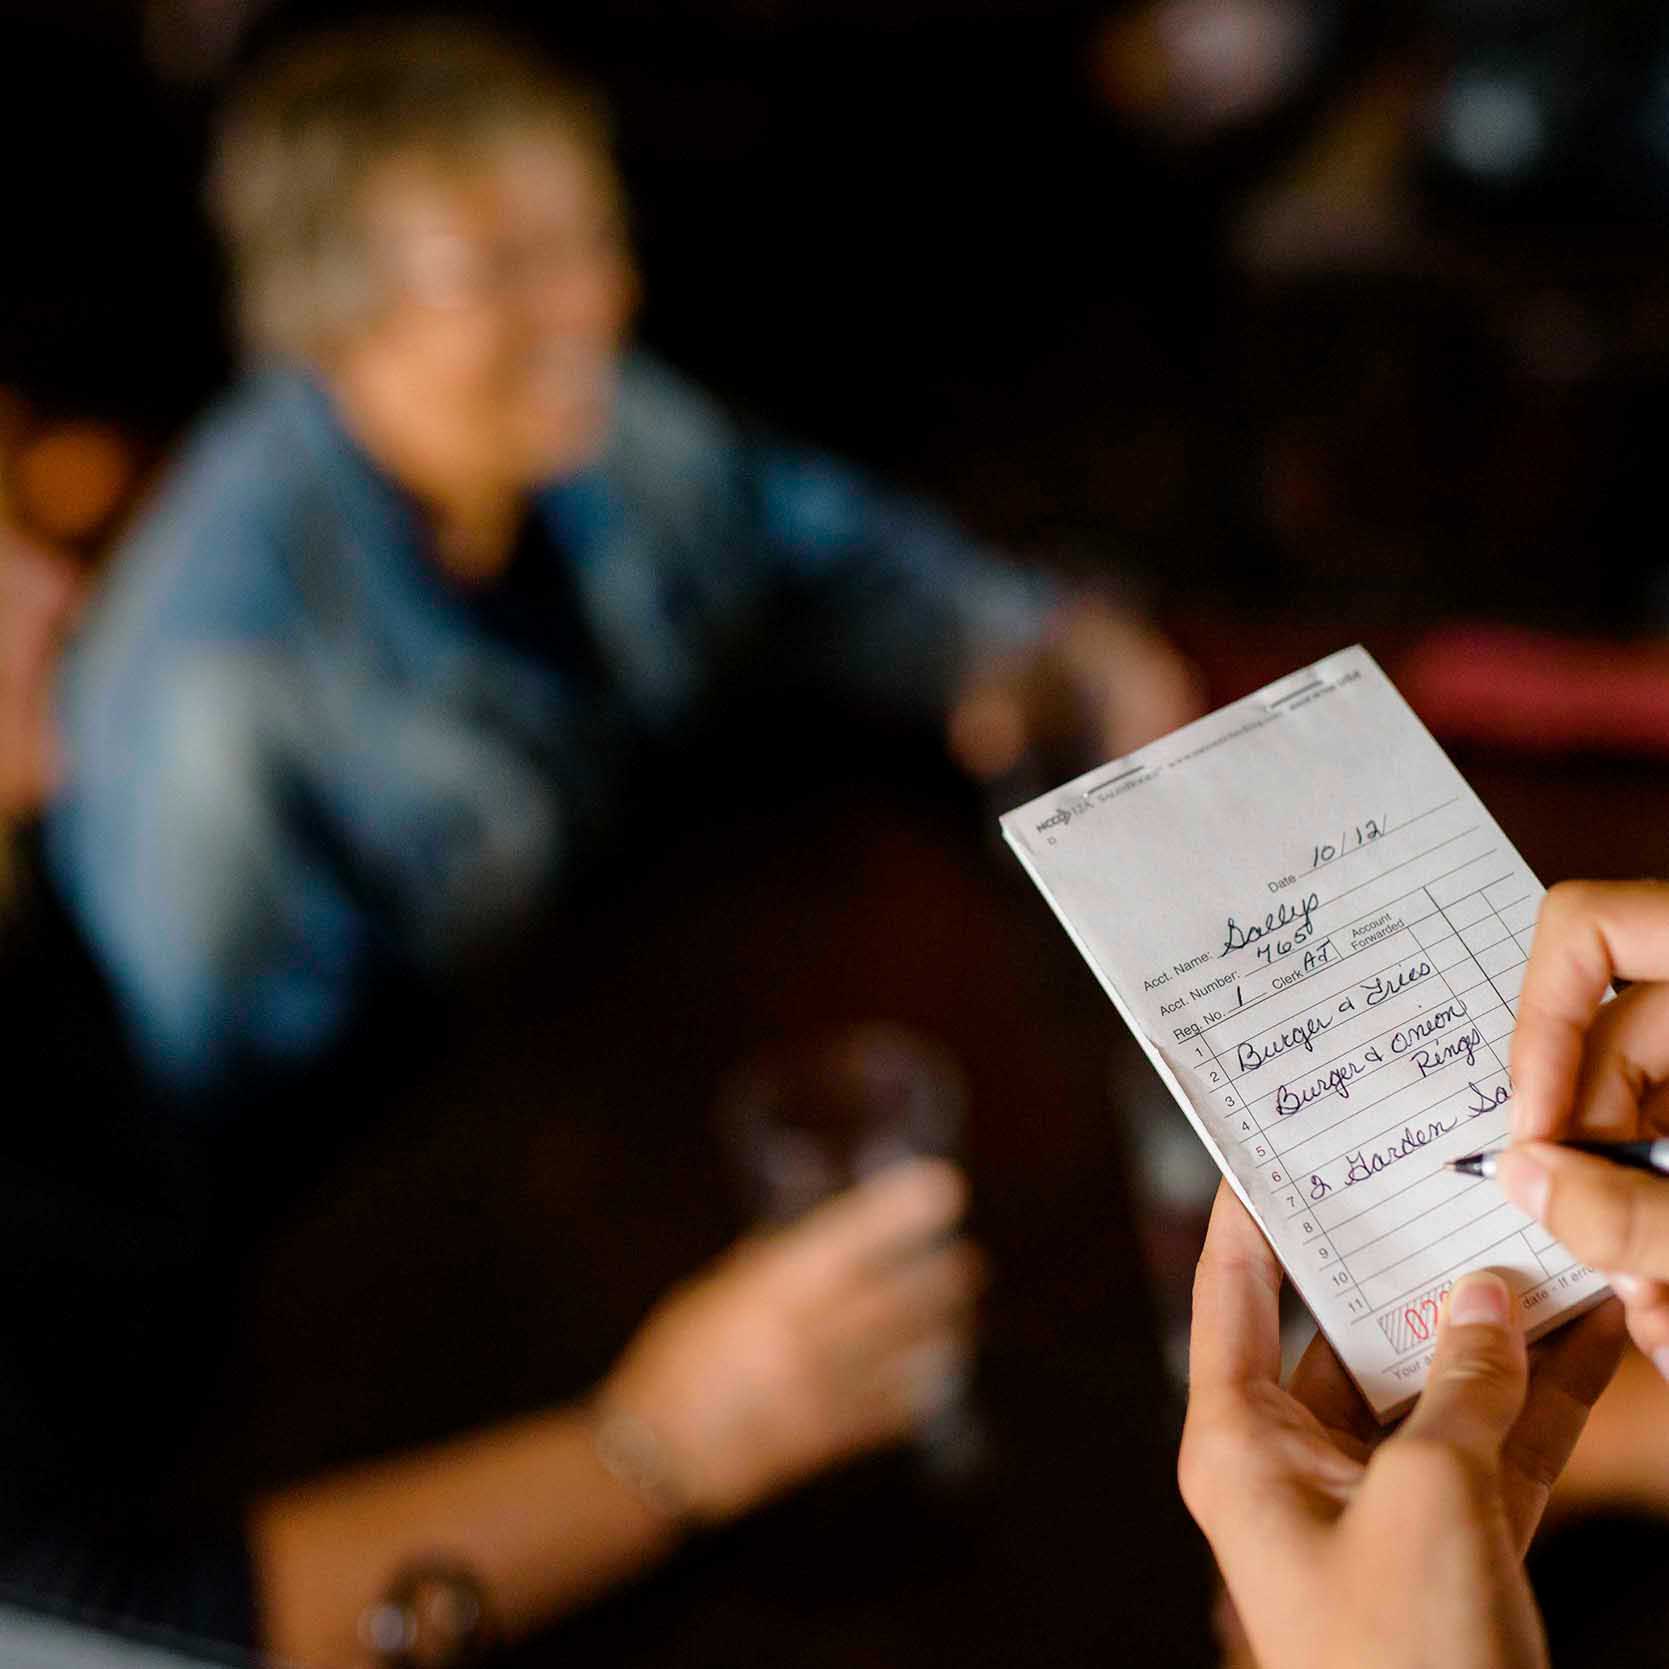 NCCO 12A
Date 10/12/
Acct. Name: Sallys
Acct. Number: 765
Reg. No. 1 Clerk AJ Account Forwarded
1 Burger & Fries
2
3 Burger & Onion
4 Rings
5
6
7 2 Garden Sa
8
9
10
11
07
Your date - If